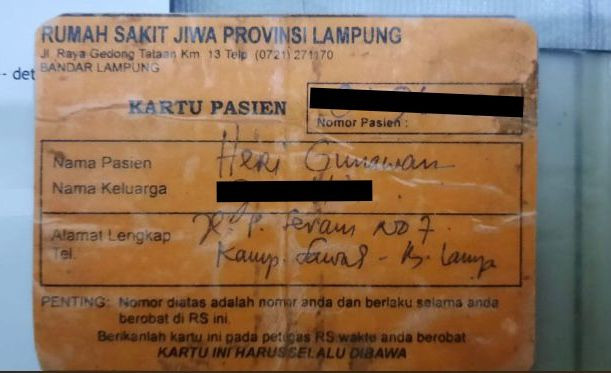 RUMAH SAKIT JIWA PROVINSI LAMPUNG
Jl. Raya Gedong Tataan Km 13 Telp (0721) 271170
BANDAR LAMPUNG
- det
KARTU PASIEN
Nomor Pasien :
Nama Pasien Heri Gunawan
Nama Keluarga
Alamat Lengkap Jl. P. Seram No 7
Tel. Kamp. Sawah - B. Lamp
PENTING: Nomor diatas adalah nomor anda dan berlaku selama anda
berobat di RS ini.
Berikanlah kartu ini pada petugas RS waktu anda berobat
KARTU INI HARUS SELALU DIBAWA